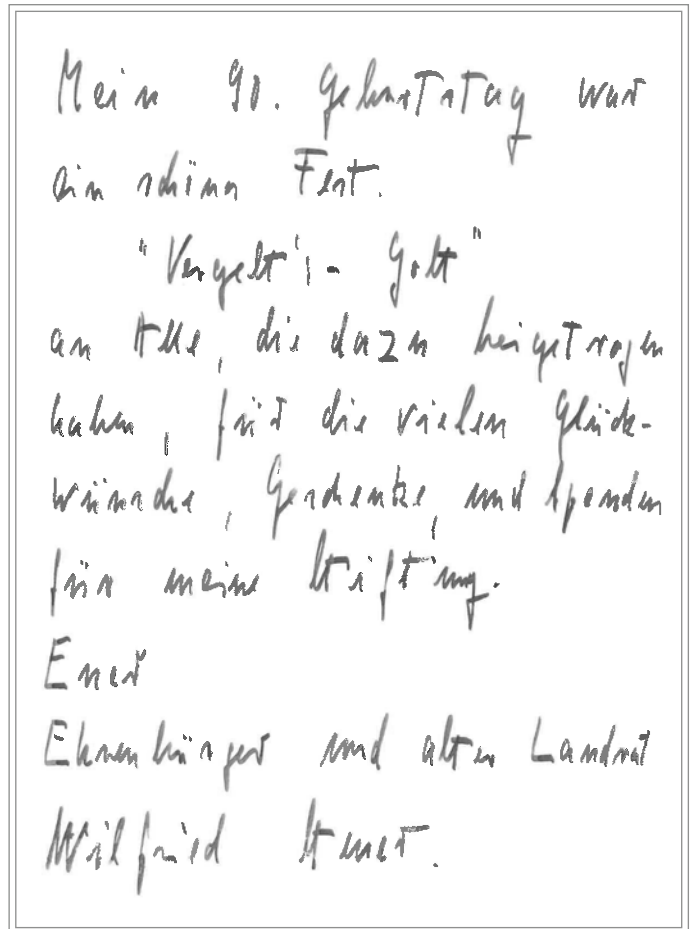 Mein 90. Geburtstag war
ein schönes Fest.
"Vergelt's - Gott"
an Alle, die dazu beigetragen
haben, für die vielen Glück-
wünsche, Geschenke, und Spenden
für meine Stiftung.
Euer
Ehrenbürger und alter Landrat
Wilfried Steuer.